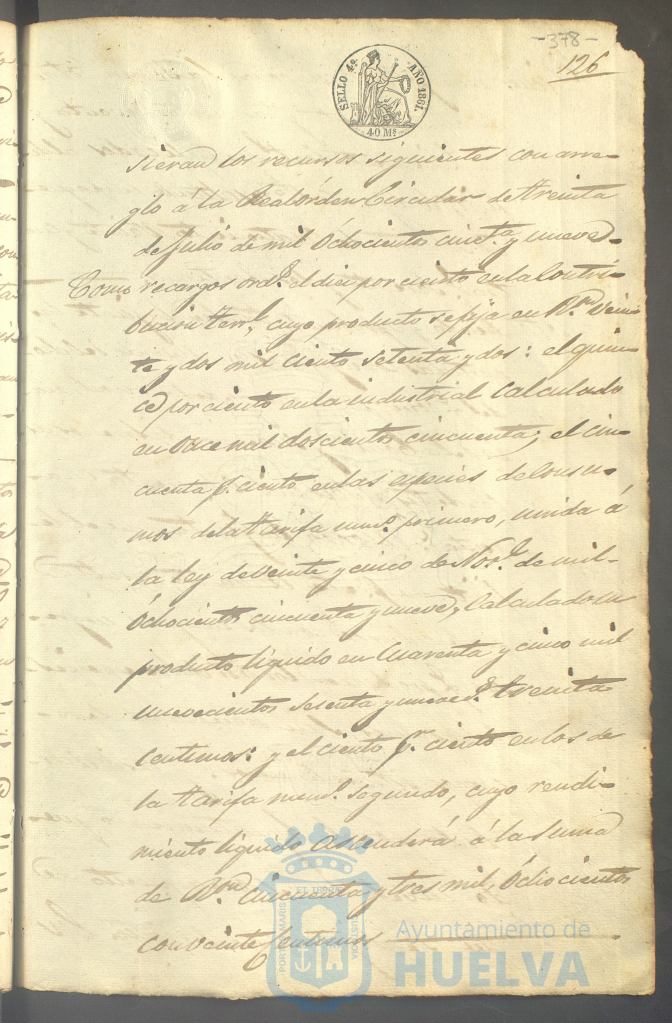 -378-
126
SELLO 4º AÑO 1861.
40 Ms
sieran los recursos siguientes con arre-
glo á la Real órden Circular de treinta
de Julio de mil Ochocientos cincta. y nueve.
Como recargos ords. el diez por ciento en la Contri-
bucion terrl. cuyo producto se fija en Rs. vn. vein-
te y dos mil ciento setenta y dos: el quin-
ce por ciento en la industrial calculado
en once mil doscientos cincuenta; el cin-
cuenta p. ciento en las especies de Consu-
mos de la tarifa numo. primero, unida á
la ley de veinte y cinco de Nove. de mil
Ochocientos cincuenta y nueve, calculado su
producto líquido en Cuarenta y cinco mil
nuevecientos sesenta y nueve rs. treinta
centimos: y el ciento p. ciento en los de
la tarifa numo. segundo, cuyo rendi-
miento líquido ascenderá á la suma
de Rs. vn. cincuenta y tres mil, Ochocientos
con veinte Centimos
PORTUS MARIS
ET TERRE
CUSTODIA
Ayuntamiento de
HUELVA